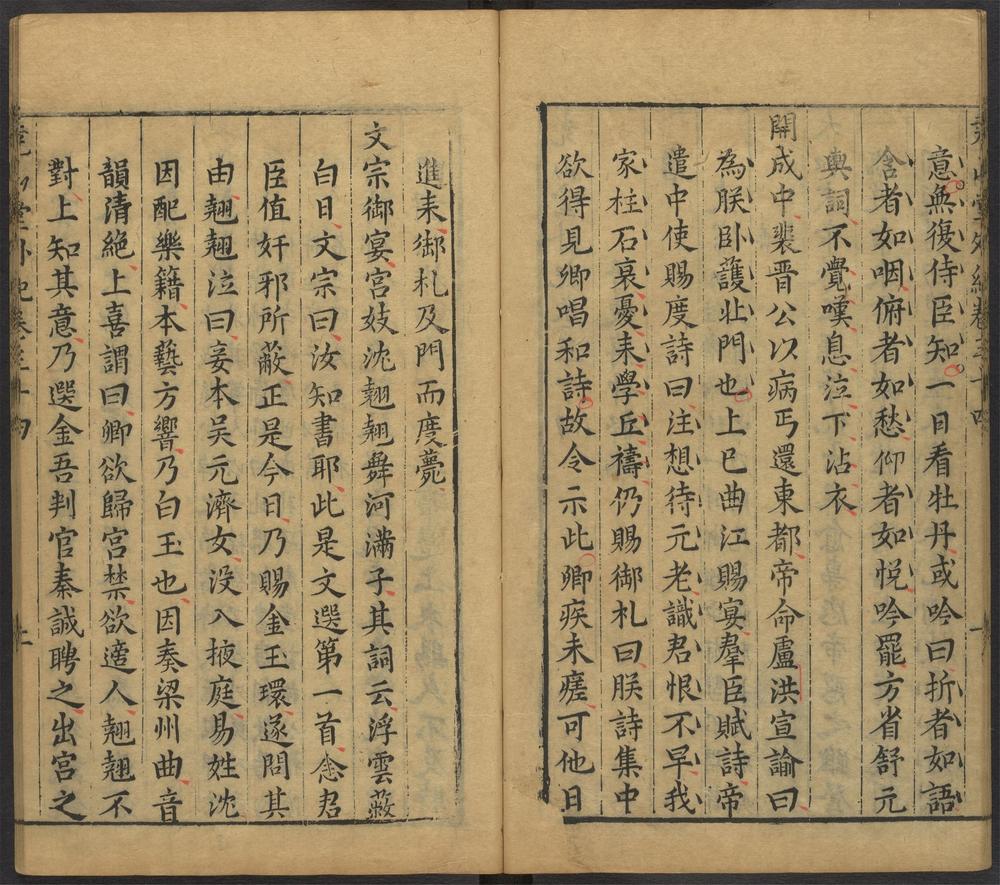 意無復侍臣知一日看牡丹或吟曰折者如語
含者如咽俯者如愁仰者如悦吟罷方省舒元
輿詞不覺嘆息泣下沾衣
開成中裴晋公以病丐還東都帝命盧洪宣諭曰
為朕卧護北門也上巳曲江賜宴羣臣賦詩帝
遣中使賜度詩曰注想待元老識君恨不早我
家柱石衰憂来學丘禱仍賜御札曰朕詩集中
欲得見卿唱和詩故令示此卿疾未瘥可他日
進来御札及門而度薨
文宗御宴宮妓沈翹翹舞河滿子其詞云浮雲蔽
白日文宗曰汝知書耶此是文選第一首念君
臣值奸邪所蔽正是今日乃賜金玉環遂問其
由翹翹泣曰妾本吴元濟女没入掖庭易姓沈
因配樂籍本藝方響乃白玉也因奏梁州曲音
韻清絶上喜謂曰卿欲歸宮禁欲適人翹翹不
對上知其意乃選金吾判官秦誠聘之出宮之